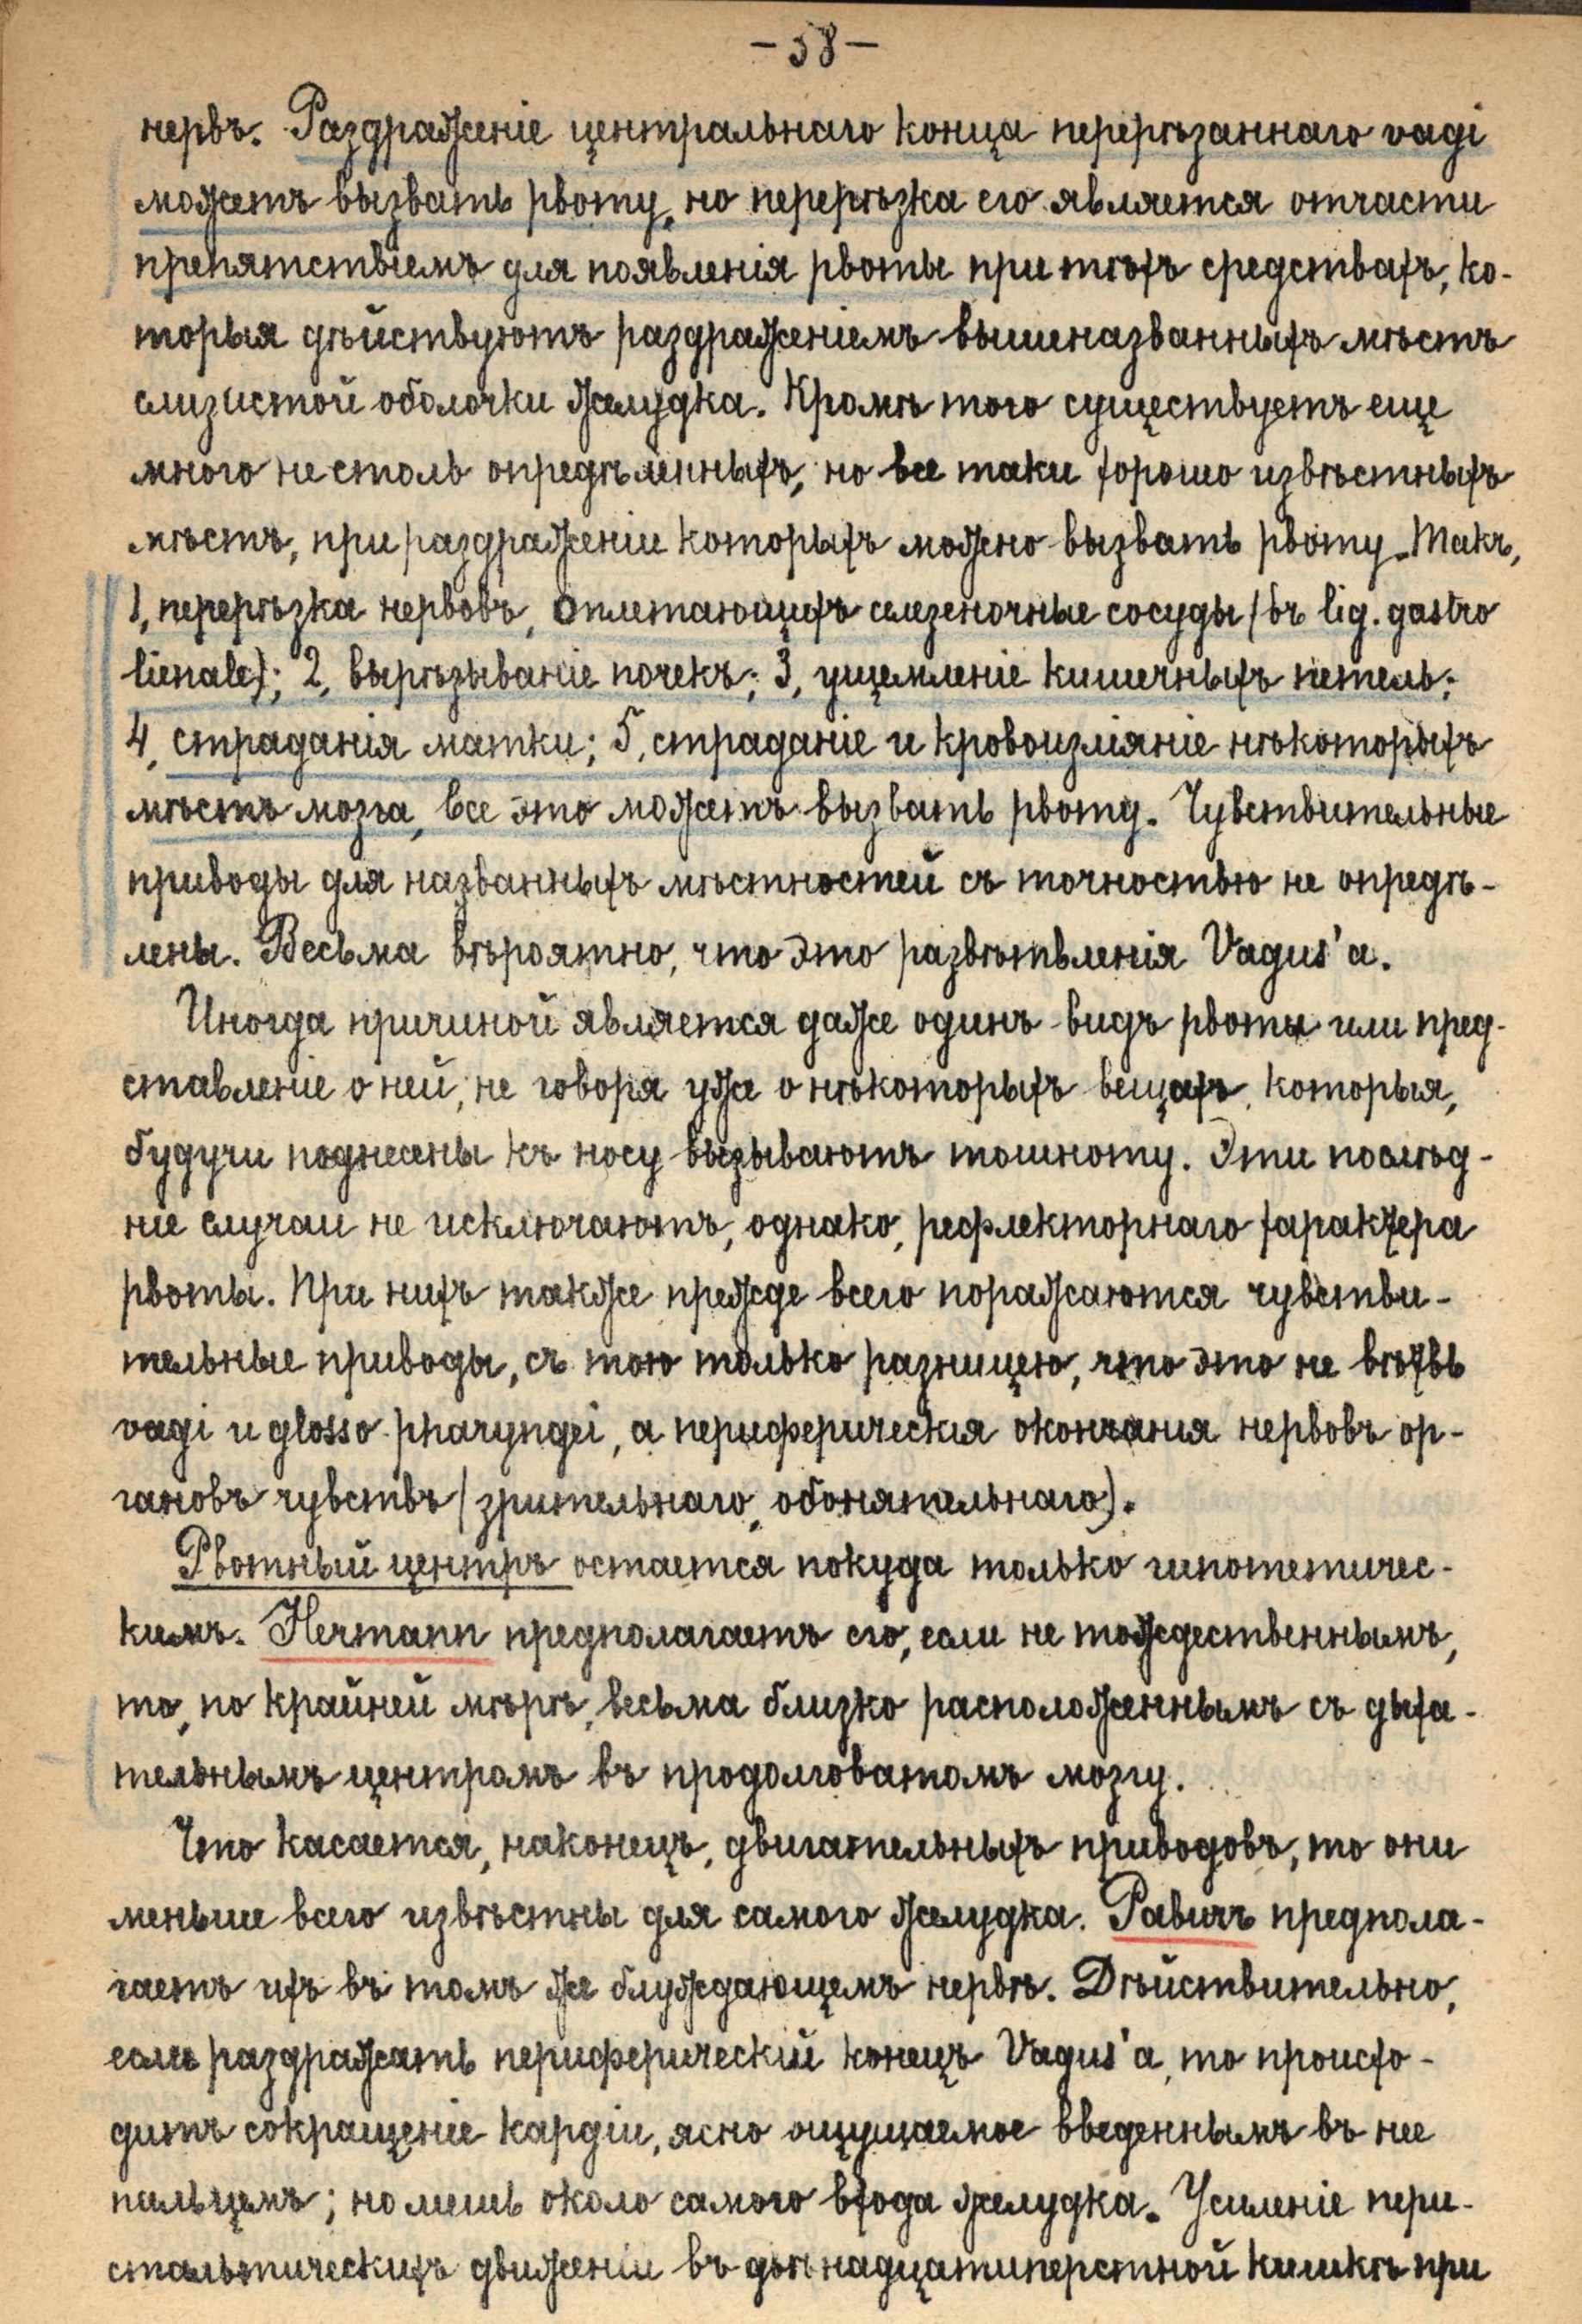 -58-
нервъ. Раздраженіе центральнаго конца перерѣзаннаго vagi
можетъ вызвать рвоту, но перерѣзка его является отчасти
препятствіемъ для появленія рвоты при тѣхъ средствахъ, ко-
торыя дѣйствуютъ раздраженіемъ вышеназванныхъ мѣстъ
слизистой оболочки желудка. Кромѣ того существуетъ еще
много не столь опредѣленныхъ, но все таки хорошо извѣстныхъ
мѣстъ, при раздраженіи которыхъ можно вызвать рвоту. Такъ,
1, перерѣзка нервовъ, оплетающихъ селезеночные сосуды (въ lig. gastro
lienale); 2, вырѣзываніе почекъ; 3, ущемленіе кишечныхъ петель;
4, страданія матки; 5, страданіе и кровоизліяніе нѣкоторыхъ
мѣстъ мозга, все это можетъ вызвать рвоту. Чувствительные
приводы для названныхъ мѣстностей съ точностью не опредѣ-
лены. Весьма вѣроятно, что это развѣтвленія Vagus'а.
Иногда причиной является даже одинъ видъ рвоты или пред-
ставленіе о ней, не говоря уже о нѣкоторыхъ вещахъ, которыя,
будучи поднесены къ носу вызываютъ тошноту. Эти послѣд-
ніе случаи не исключаютъ, однако, рефлекторнаго характера
рвоты. При нихъ также прежде всего поражаются чувстви-
тельные приводы, съ тою только разницею, что это не вѣтвь
vagi и glosso-pharyngei, а периферическія окончанія нервовъ ор-
гановъ чувствъ (зрительнаго, обонятельнаго).
Рвотный центръ остается покуда только гипотетичес-
кимъ. Hermann предполагаетъ его, если не тождественнымъ,
то, по крайней мѣрѣ, весьма близко расположеннымъ съ дыха-
тельнымъ центромъ въ продолговатомъ мозгу.
Что касается, наконецъ, двигательныхъ приводовъ, то они
меньше всего извѣстны для самого желудка. Равичъ предпола-
гаетъ ихъ въ томъ же блуждающемъ нервѣ. Дѣйствительно,
если раздражать периферическій конецъ Vagus'а, то происхо-
дитъ сокращеніе кардіи, ясно ощущаемое введеннымъ въ нее
пальцемъ; но лишь около самого входа желудка. Усиленіе пери-
стальтическихъ движеніи въ двѣнадцатиперстной кишкѣ при